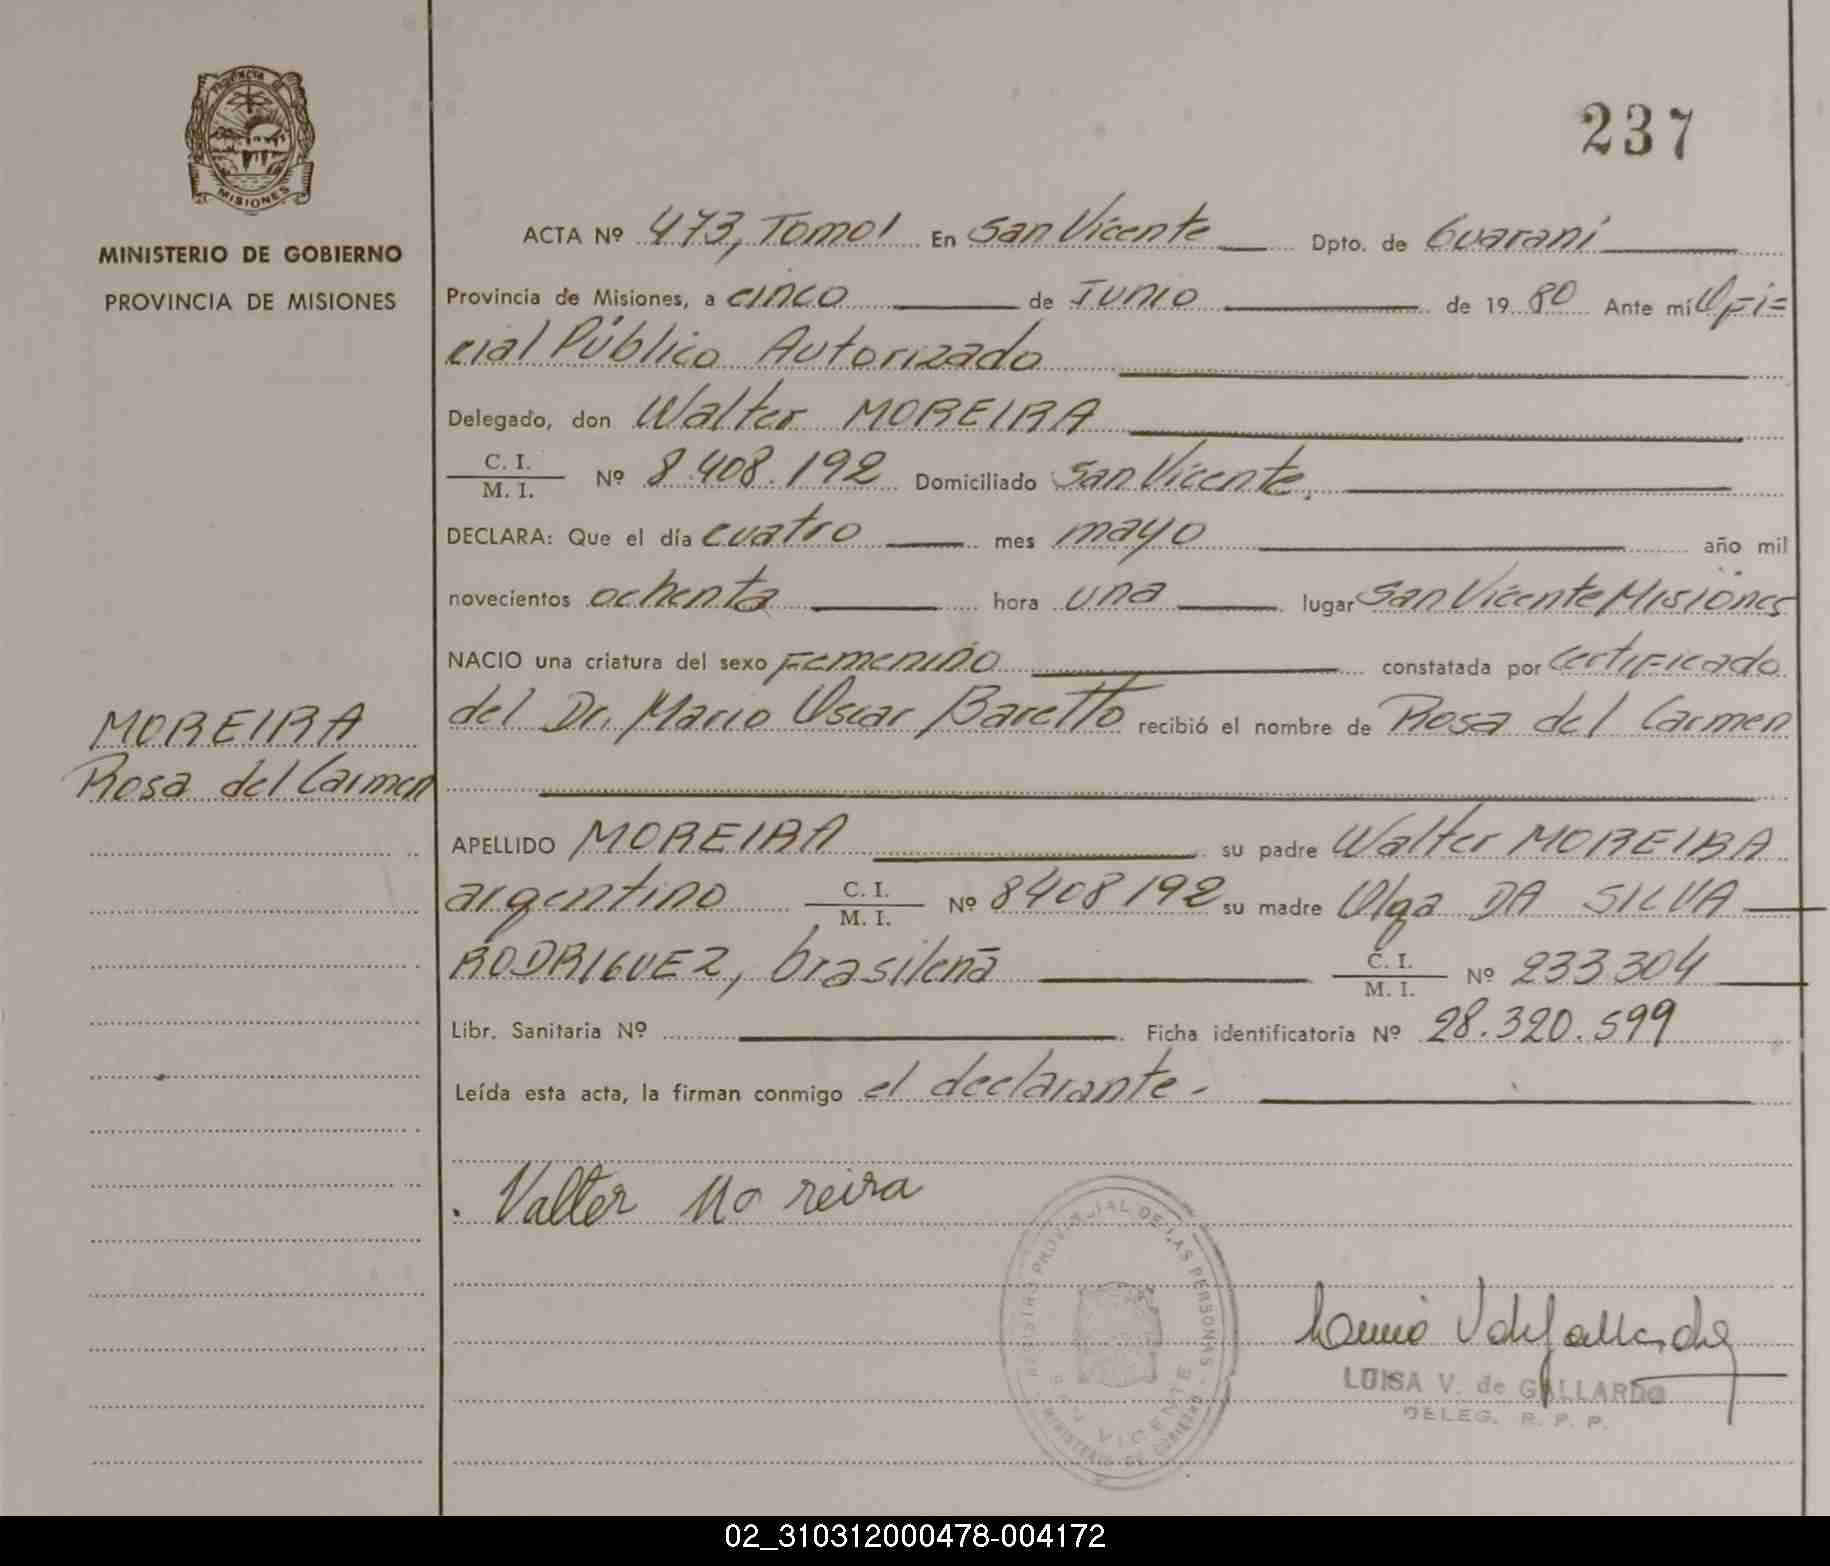 PROVINCIA DE
MISIONES
MINISTERIO DE GOBIERNO
PROVINCIA DE MISIONES
MOREIRA
Rosa del Carmen
237
ACTA Nº 473, Tomo I En San Vicente Dpto. de Guaraní
Provincia de Misiones, a cinco de Junio de 1980 Ante mí Ofi=
cial Público Autorizado
Delegado, don Walter MOREIRA
C. I.
M. I. Nº 8.408.192 Domiciliado San Vicente.
DECLARA: Que el día cuatro mes mayo año mil
novecientos ochenta hora una lugar San Vicente Misiones
NACIO una criatura del sexo Femenino constatada por Certificado
del Dr. Mario Oscar Baretto recibió el nombre de Rosa del Carmen
APELLIDO MOREIRA su padre Walter MOREIRA
argentino C. I. M. I. Nº 8408192 su madre Olga DA SILVA
RODRIGUEZ, brasileña C. I. M. I. Nº 233304
Libr. Sanitaria Nº Ficha identificatoria Nº 28.320.599
Leída esta acta, la firman conmigo el declarante-
Valter Moreira
REGISTRO PROVINCIAL DE LAS PERSONAS
SAN VICENTE
MINISTERIO DE GOBIERNO
LUISA V. de GALLARDO
DELEG. R. P. P.
02_310312000478-004172